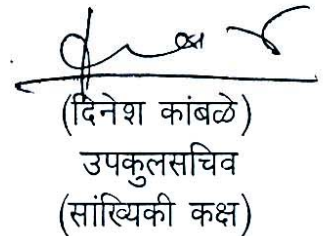 (दिनेश कांबळे)
उपकुलसचिव
(सांख्यिकी कक्ष)